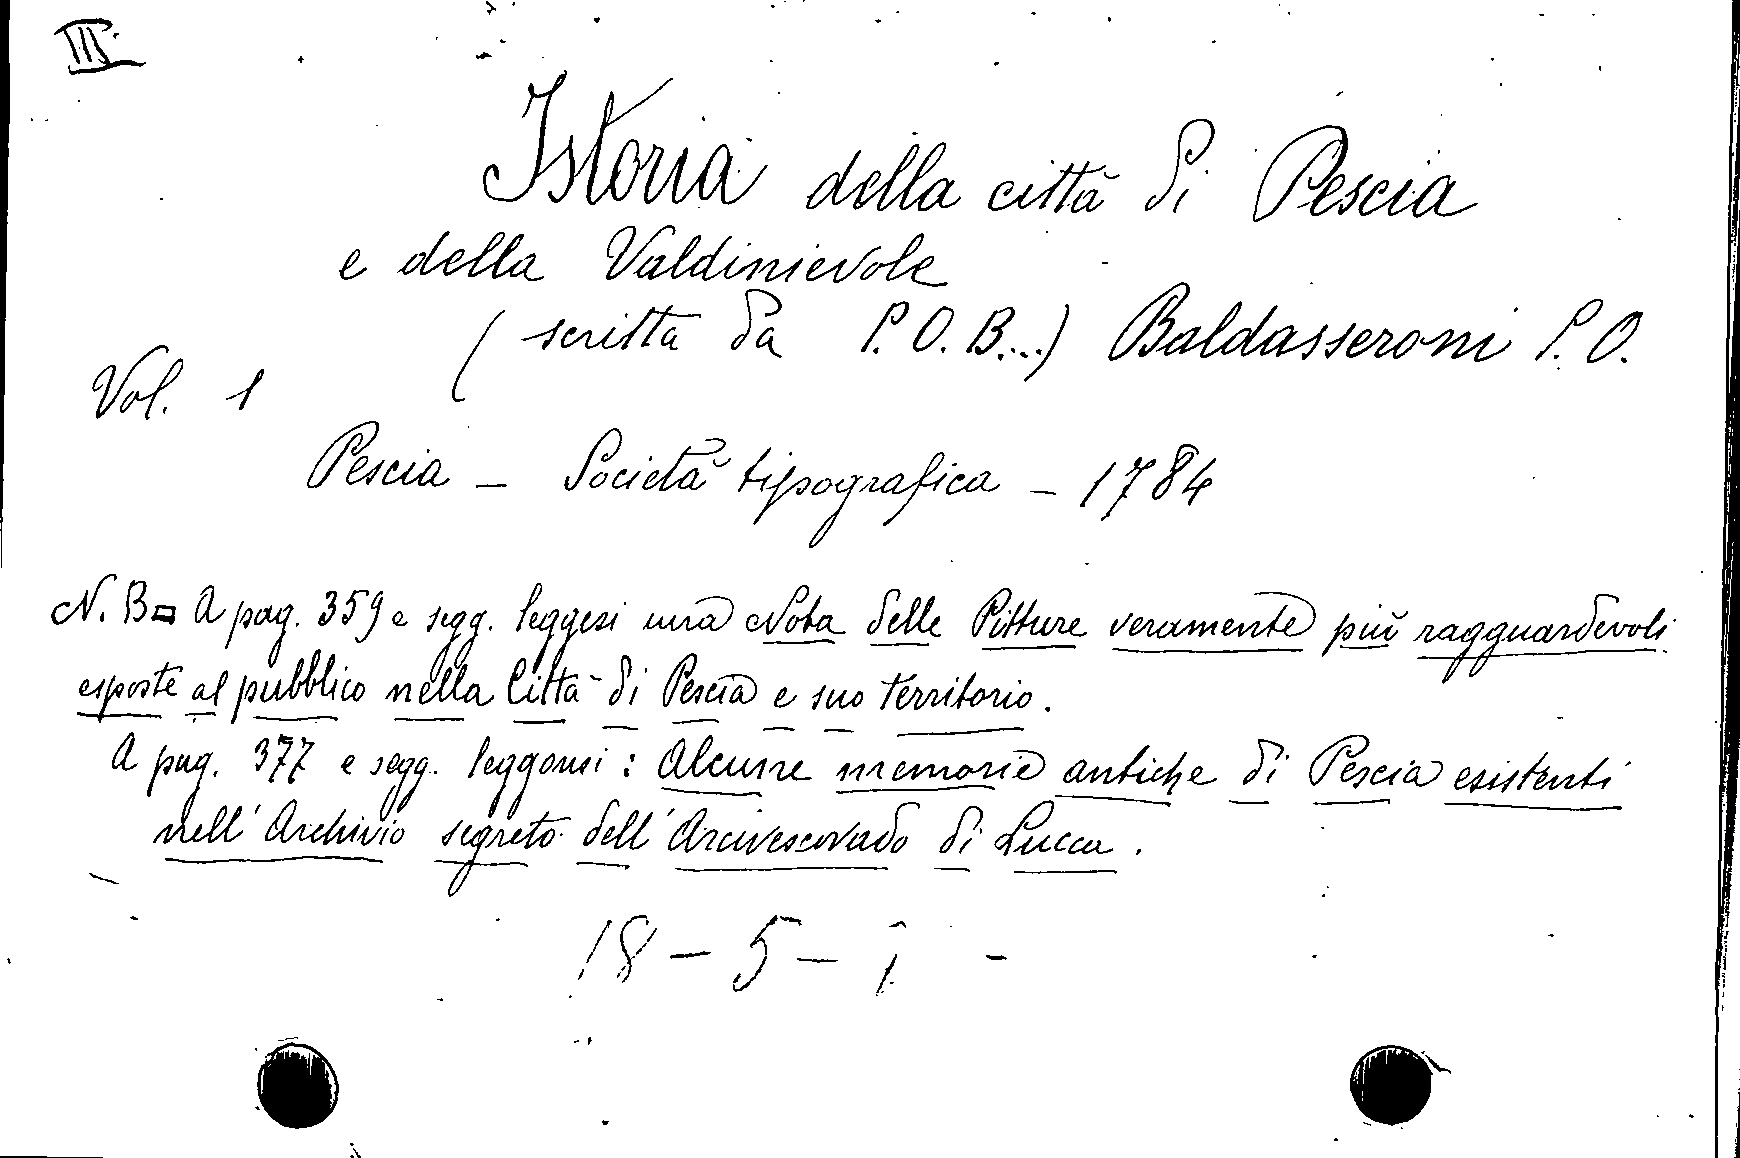 III.
Istoria della città di Pescia
e della Valdinievole
(scritta da P. O. B...) Baldasseroni P. O.
Vol. 1
Pescia - Società tipografica - 1784
N. B = A pag. 359 e segg. leggesi una Nota delle Pitture veramente più ragguardevoli
esposte al pubblico nella Città di Pescia e suo territorio.
A pag. 377 e segg. leggonsi : Alcune memorie antiche di Pescia esistenti
nell' Archivio segreto dell' Arcivescovado di Lucca.
18 - 5 - 1 -